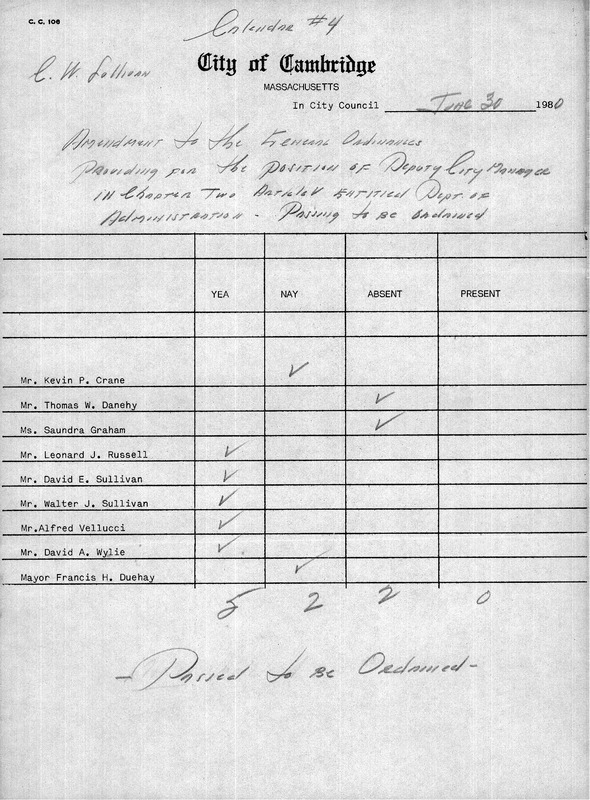 C. C. 106
Calendar #4
C. W. Sullivan
City of Cambridge
MASSACHUSETTS
In City Council June 30 1980
Amendment to the General Ordinances
providing for the position of Deputy City Manager
in Chapter Two Article V entitled Dept. of
Administration - Passing to be ordained
YEA NAY ABSENT PRESENT
Mr. Kevin P. Crane ✓
Mr. Thomas W. Danehy ✓
Ms. Saundra Graham ✓
Mr. Leonard J. Russell ✓
Mr. David E. Sullivan ✓
Mr. Walter J. Sullivan ✓
Mr.Alfred Vellucci ✓
Mr. David A. Wylie ✓
Mayor Francis H. Duehay ✓
5 2 2 0
- Passed to be Ordained -